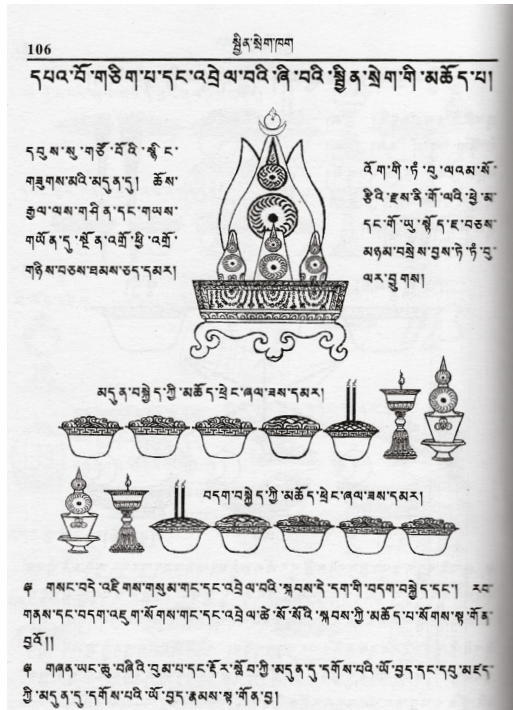 106
སྦྱིན་སྲེག་ཁག
དཔའ་བོ་གཅིག་པ་དང་འབྲེལ་བའི་ཞི་བའི་སྦྱིན་སྲེག་གི་མཆོད་པ།
དབུས་སུ་གཙོ་བོའི་སྙིང་
གཟུགས་མའི་མདུན་དུ། ཆོས་
རྒྱལ་ལས་གཤིན་དང་གཡས་
གཡོན་དུ་སྔོན་འགྲོ་ཕྱི་འགྲོ་
གཉིས་བཅས་ཐམས་ཅད་དམར།
འོག་གི་ཏཾ་བུ་ལའམ་སོ་
རྩིའི་རྫས་ནི་གོ་ལའི་ཕྱེ་མ་
དང་གོ་ཡུ་སྟོད་ཇ་བཅས་
མཉམ་བསྲེས་བྱས་ཏེ་ཏཾ་བུ་
ལར་བླུགས།
མདུན་བསྐྱེད་ཀྱི་མཆོད་ཕྲེང་ཞལ་ཟས་དམར།
བདག་བསྐྱེད་ཀྱི་མཆོད་ཕྲེང་ཞལ་ཟས་དམར།
༈ གསང་བདེ་འཇིགས་གསུམ་གང་དང་འབྲེལ་བའི་སྐབས་དེ་དག་གི་བདག་བསྐྱེད་དང་། རབ་
གནས་དང་བདག་འཇུག་སོགས་གང་དང་འབྲེལ་ཚེ་སོ་སོའི་སྐབས་ཀྱི་མཆོད་པ་སོགས་སྟ་གོན་
བྱའོ།།
༈ གཞན་ཡང་ཆུ་བཞིའི་བུམ་པ་དང་རྡོར་སློབ་ཀྱི་མདུན་དུ་དགོས་པའི་ཡོ་བྱད་དང་དབུ་མཛད་
ཀྱི་མདུན་དུ་དགོས་པའི་ཡོ་བྱད་རྣམས་སྟ་གོན་བྱ།